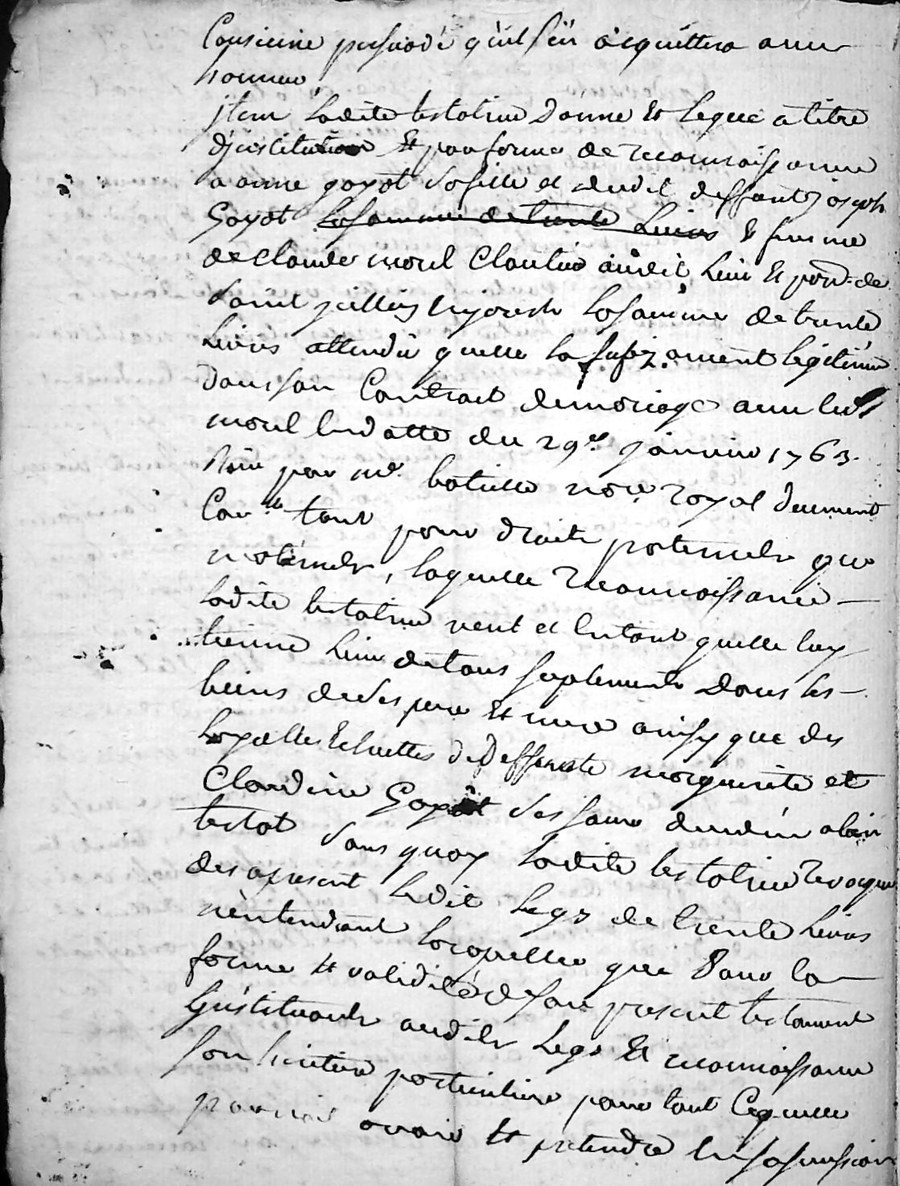 Consiene persuadé quil sen acquittera avec
honneur
jtem Ladite testatrice donne et Legue a titre
djnstitution et par forme de reconnaissance
a anne goyot sa fille et dudit deffunt joseph
Goyot la somme de trente Livres et femme
de Claude morel Cloutier audit Lieu et parr. de
saint jullien La somme de trente
Livres attendu quelle la sufizament legitimé
dans son Contrait de mariage avec led
morel en datte du 29e. janvier 1763.
Reçu par me. notre royal duement
Con.lé tant pour droits paternels que
maternels, laquelle reconnoissance
Ladite testatrice veut et Entant quelle luy
tienne Lieu de tous suplements dans les
biens de ses pere et mere ainsy que des
hoyrettes Echuttes de deffuncte marguerite et
Claudine Goyot ses sœurs
testat sans quoy Ladite testatrice revoque
des apresent Ledit Legs de trente Livres
nentendant Lapeller que pour la
forme et validité de son present testament
Linstituant audit Legs et reconnoissance
son heritiere particuliere pour tout Ce quelle
pourroit avoir et pretendre En sa succession